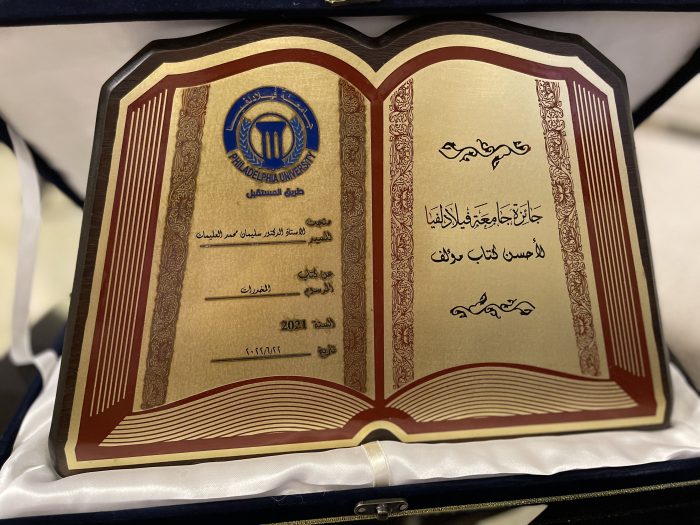 جائزة جامعة فيلادلفيا
لأحسن كتاب مؤلف
جامعة فيلادلفيا
PHILADELPHIA UNIVERSITY
طريق المستقبل
منحت
للسيد الأستاذ الدكتور سليمان محمد العليمات
عن كتاب
الموسوم المخدرات
لسنة 2021
تاريخ ٢٠٢٢/٦/٢٢